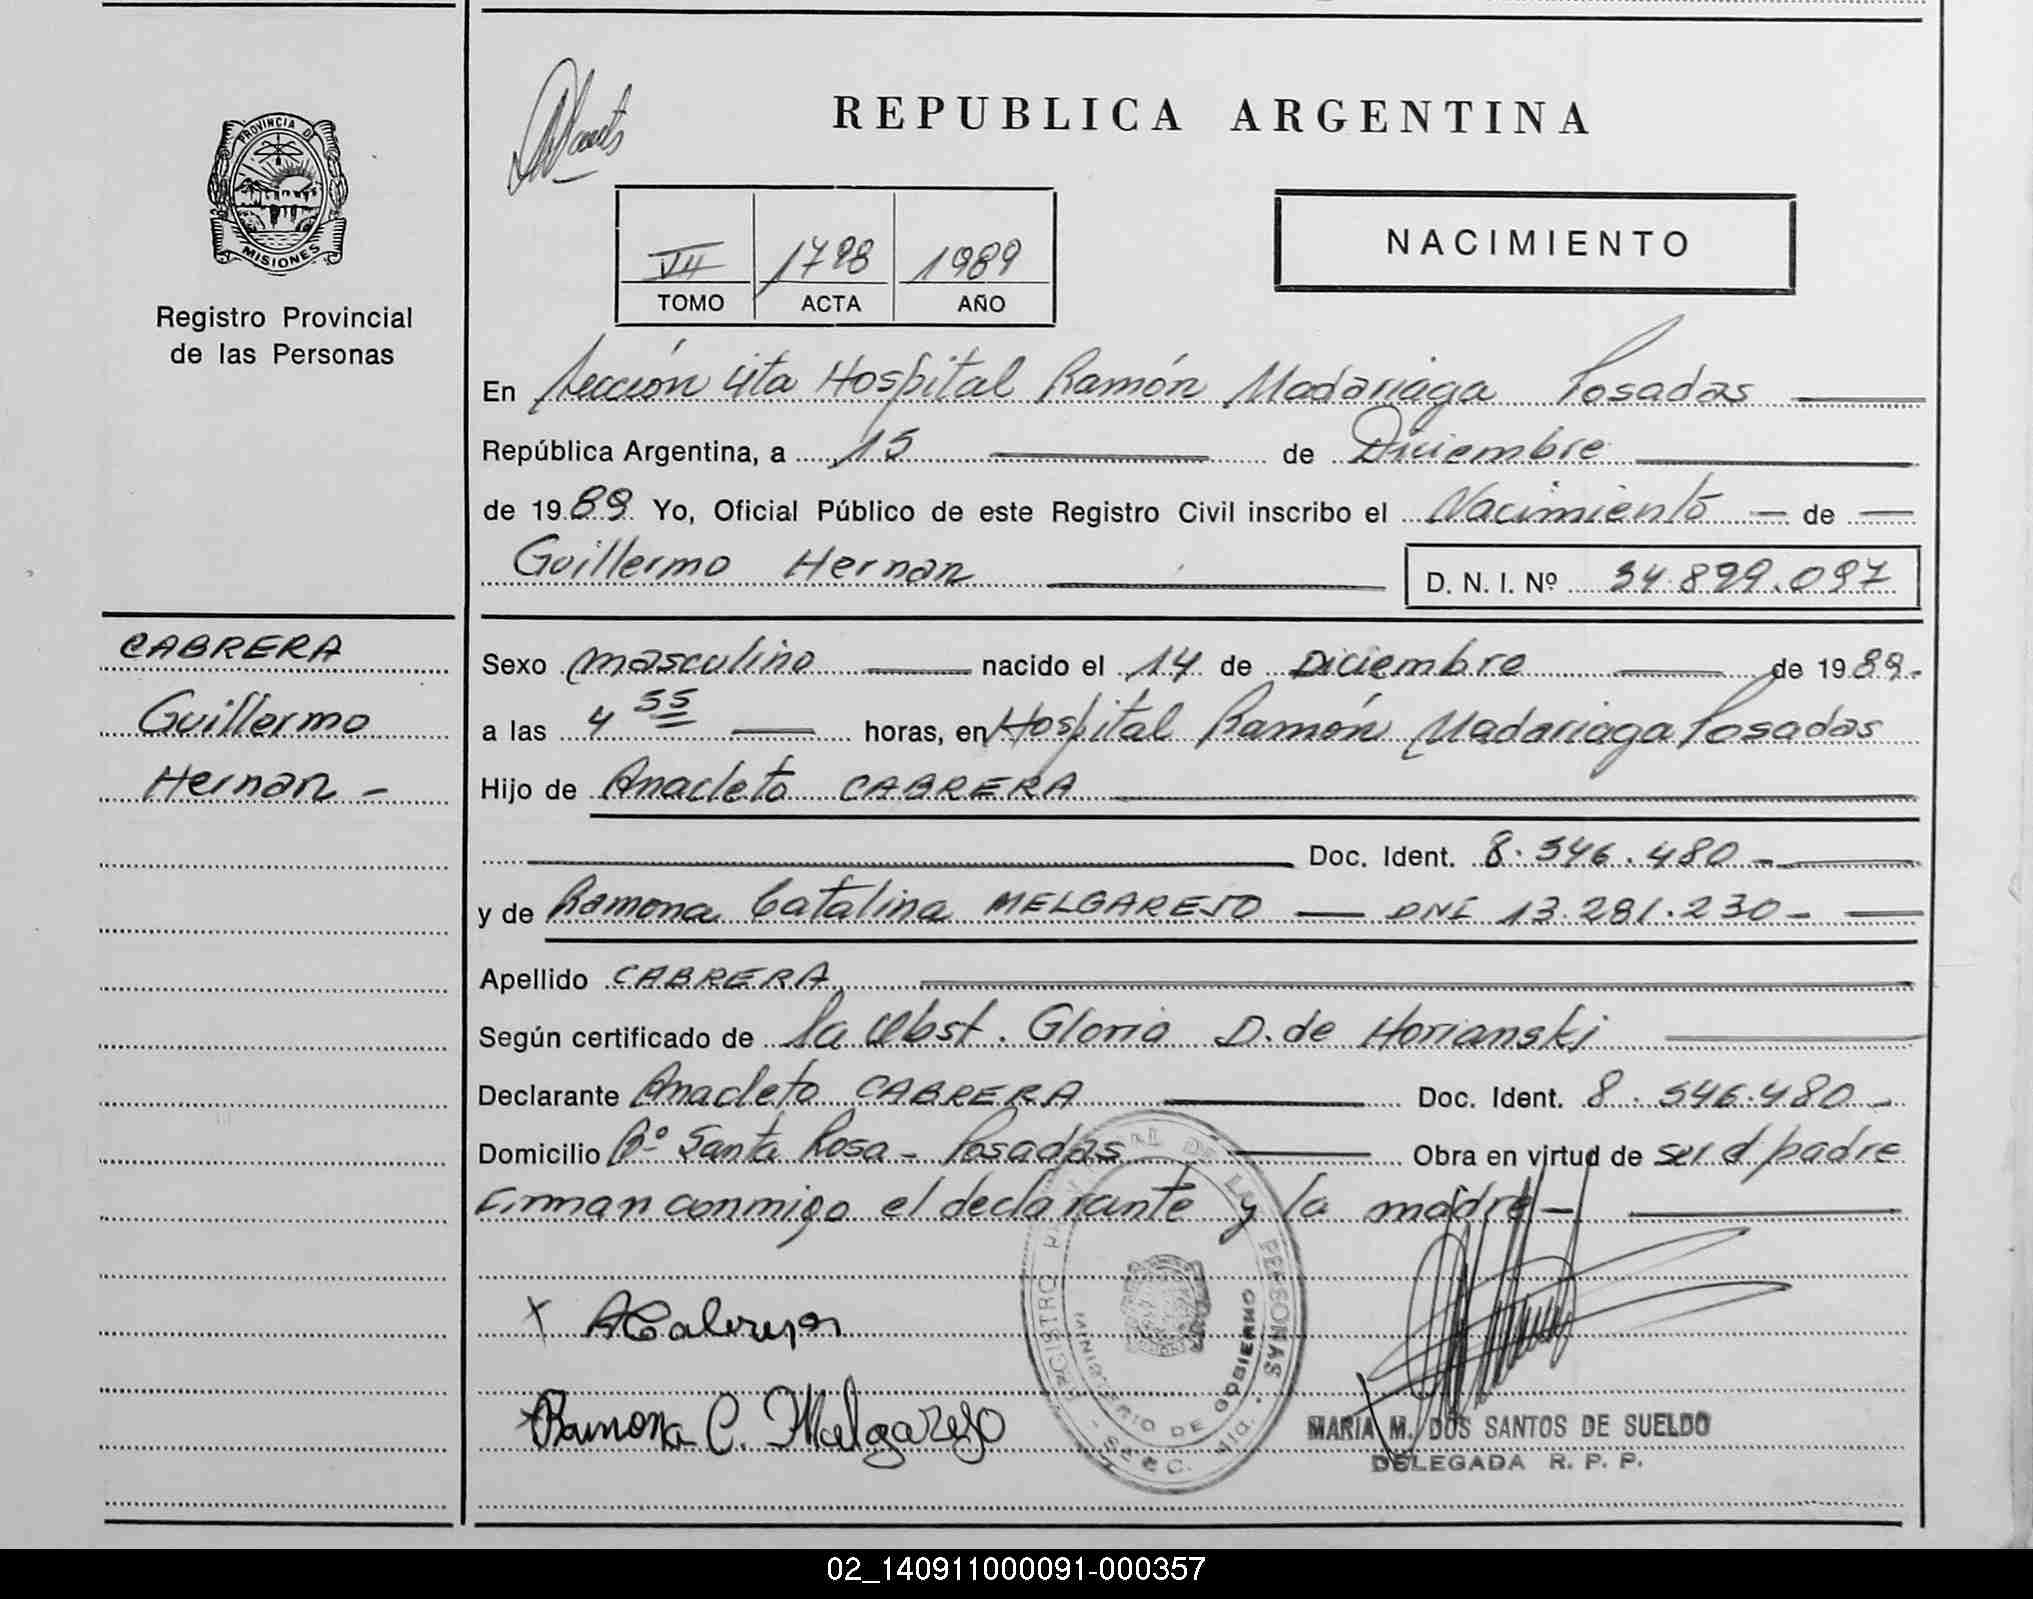 REPUBLICA ARGENTINA
PROVINCIA D
MISIONES
Registro Provincial
de las Personas
VII 1798 1989
TOMO ACTA AÑO
NACIMIENTO
En Sección 4ta Hospital Ramón Madariaga Posadas
República Argentina, a 15 de Diciembre
de 1989 Yo, Oficial Público de este Registro Civil inscribo el Nacimiento de
Guillermo Hernan D. N. I. Nº 34.899.097
CABRERA
Guillermo
Hernan -
Sexo masculino nacido el 14 de Diciembre de 1989.
a las 4 55 horas, en Hospital Ramón Madariaga Posadas
Hijo de Anacleto CABRERA
Doc. Ident. 8.546.480 -
y de Ramona Catalina MELGAREJO — DNI 13.281.230 -
Apellido CABRERA
Según certificado de la Obst. Gloria D. de Horianski
Declarante Anacleto CABRERA Doc. Ident. 8.546.480 -
Domicilio Bº Santa Rosa - Posadas Obra en virtud de ser el padre
Firman conmigo el declarante y la madre -
x ACabrera
x Ramona C. Melgarejo
REGISTRO PROVINCIAL DE LAS PERSONAS
MINISTERIO DE GOBIERNO
MARIA M. DOS SANTOS DE SUELDO
DELEGADA R. P. P.
02_140911000091-000357